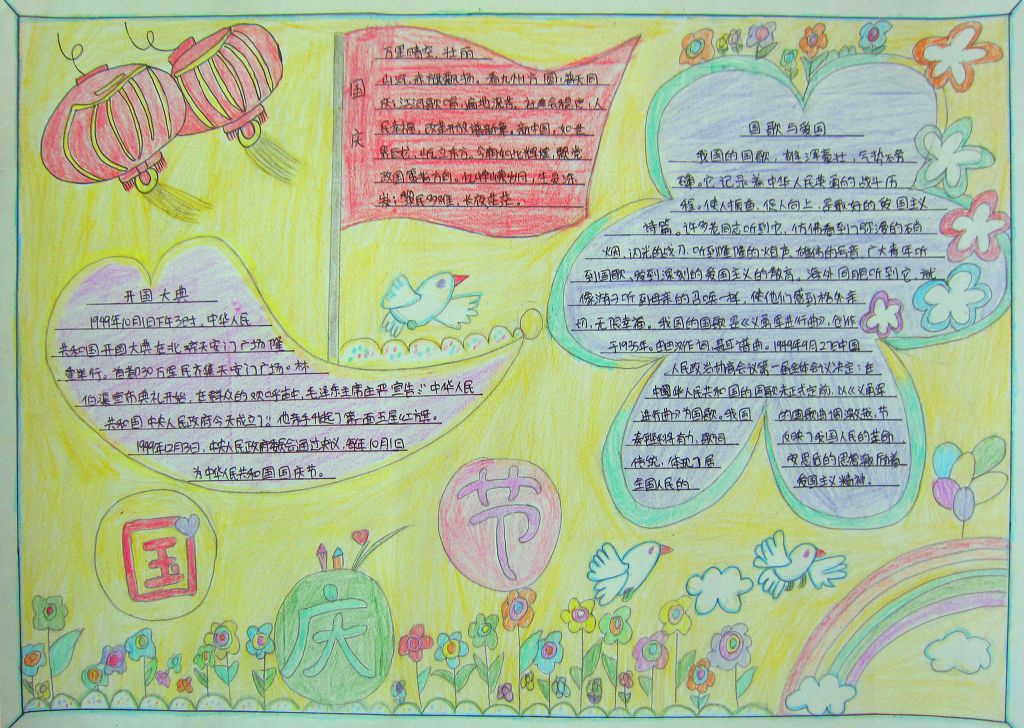 国
庆
万里晴空,壮丽
山河,赤旗飘扬。看九州方圆,普天同
庆;江河歌唱,遍地流芳。社会稳定,人
民幸福,改革开放谱新章。新中国,如世
界巨龙,屹立东方。今朝如此辉煌,赖党
政国策
忆峥嵘岁月,
长夜茫茫。
开国大典
1949年10月1日下午3时,中华人民
共和国开国大典在北京天安门广场隆
重举行。首都30万军民齐集天安门广场。林
伯渠宣布典礼开始,在群众的欢呼声中,毛泽东主席庄严宣告:"中华人民
共和国中央人民政府今天成立了。"他亲手升起了第一面五星红旗。
1949年12月3日,中央人民政府委员会通过决议,每年10月1日
为中华人民共和国国庆节。
国歌与爱国
我国的国歌,雄浑豪壮,气势磅
礴。它记录着中华人民英勇的战斗历
程。使人振奋,促人向上,是最好的爱国主义
诗篇。许多老同志听到它,仿佛看到了弥漫的硝
烟,闪光的战刀,听到隆隆的炮声,雄伟的军号。广大青年听
到国歌,受到深刻的爱国主义的教育。海外同胞听到它,就
像游子听到母亲的召唤一样,使他们感到格外亲
切,无限幸福。我国的国歌是《义勇军进行曲》,创作
于1935年。田汉作词,聂耳谱曲。1949年9月27日中国
人民政治协商会议第一届全体会议决定:在
中国华人民共和国的国歌未正式定前,以《义勇军
进行曲》为国歌。我国
的国歌曲调激昂,节
奏铿锵有力,歌词
反映了我国人民的革命
传统,体现了居
安思危的思想,激励着
全国人民的
爱国主义精神。
国
庆
节